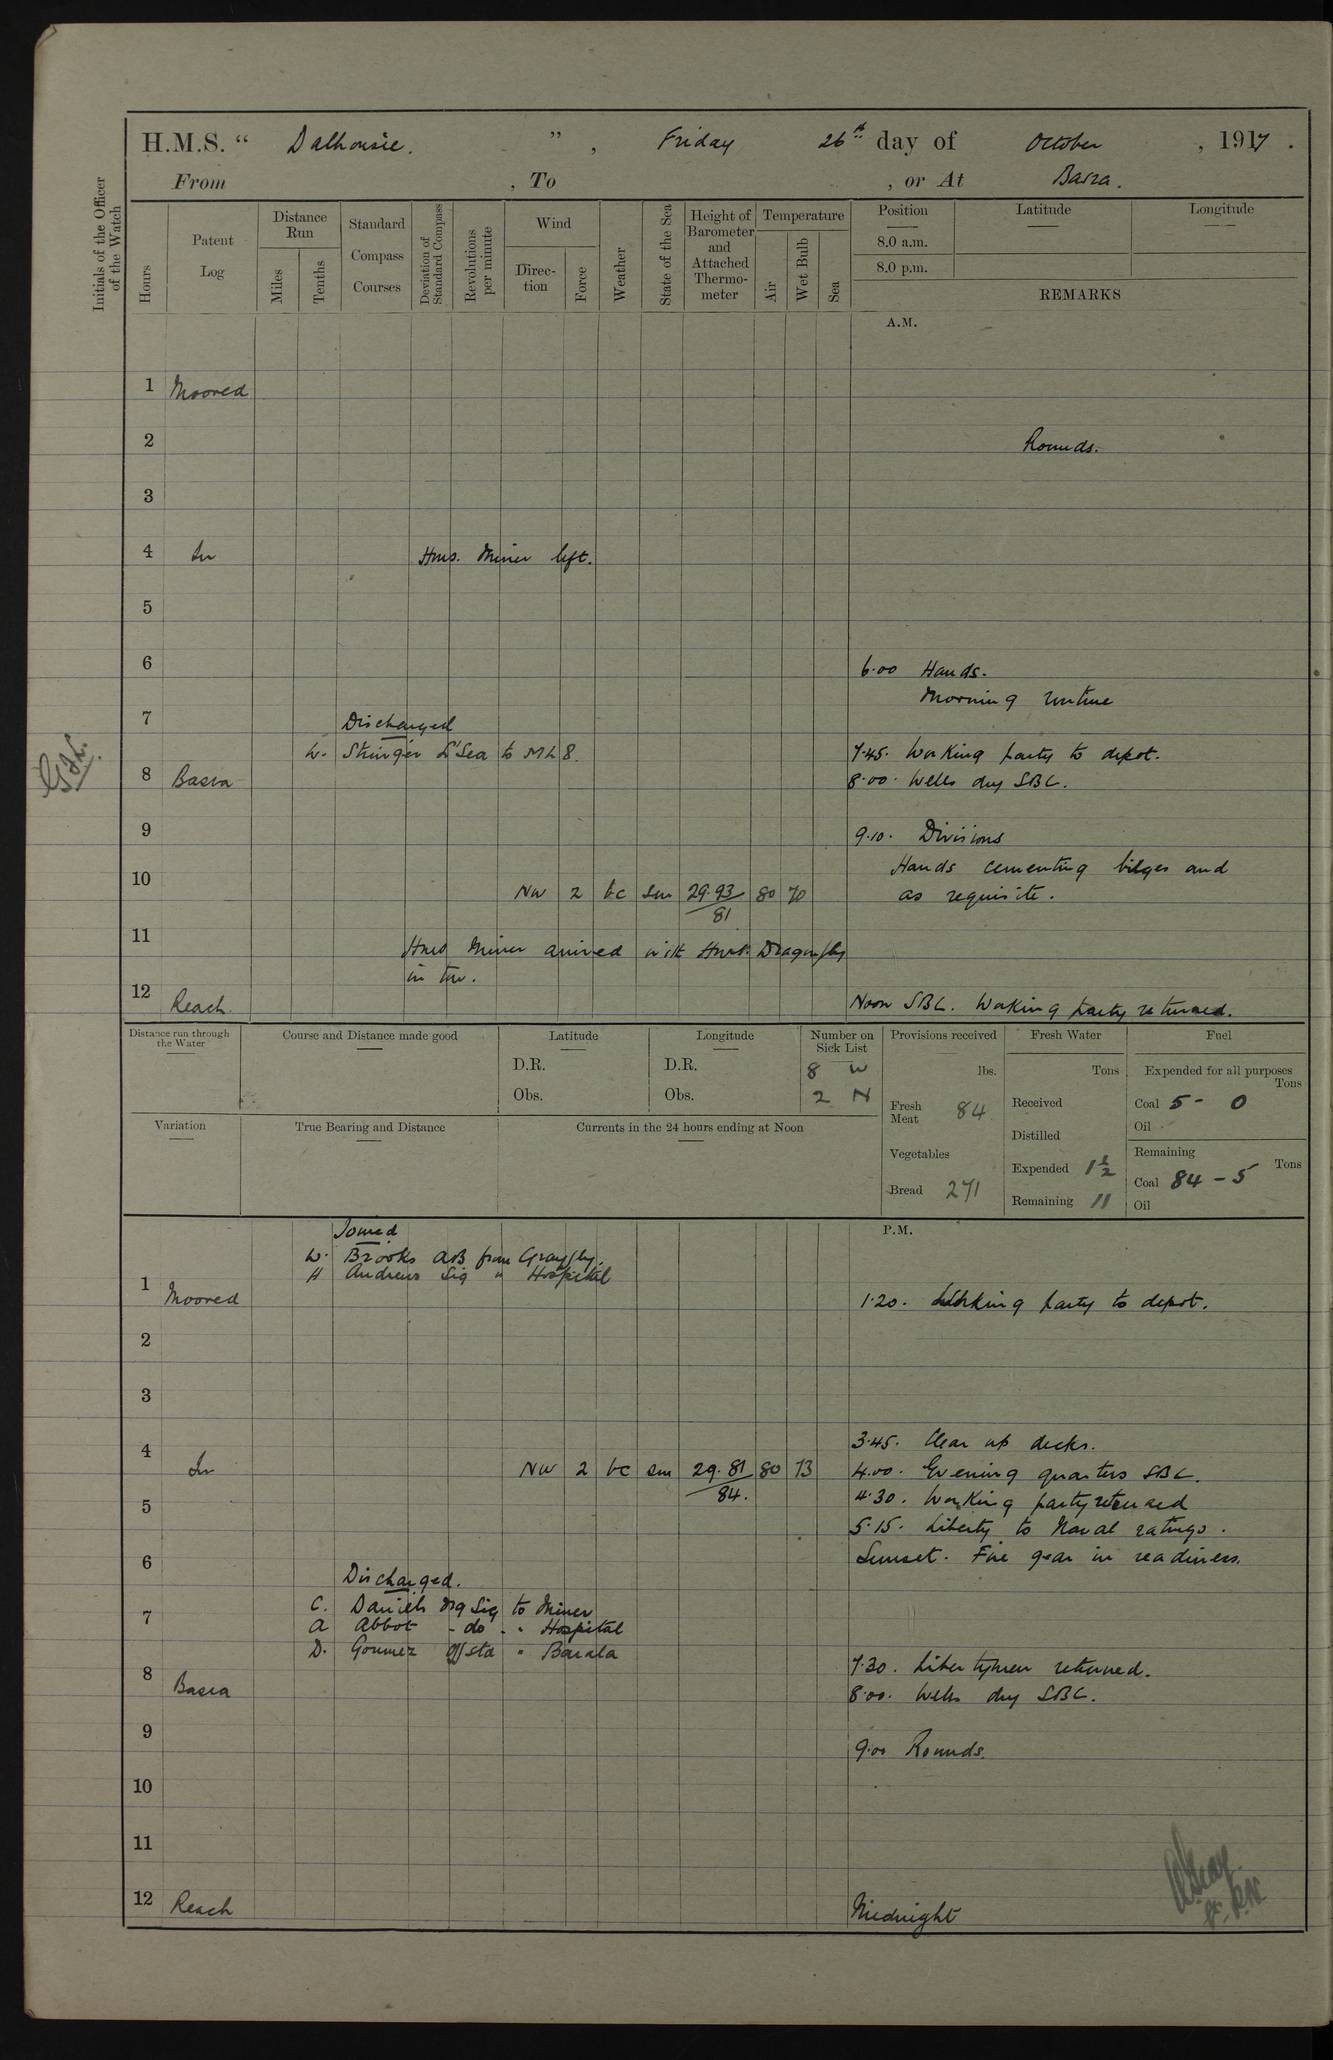 H.M.S. " Dalhousie. ", Friday 26th day of October, 1917.
From , To , or At Basra.
Initials of the Officer of the Watch
Hours
Patent Log
Distance Run
Miles
Tenths
Standard Compass Courses
Deviation of Standard Compass
Revolutions per minute
Wind
Direction
Force
Weather
State of the Sea
Height of Barometer and Attached Thermometer
Temperature
Air
Wet Bulb
Sea
Position
Latitude
Longitude
8.0 a.m.
8.0 p.m.
REMARKS
A.M.
1 Moored
2 Rounds.
3
4 In Hms. Miner left.
5
6 6.00 Hands.
Morning routine
7 Discharged
W. Stringer L'Sea to ML 8. 7.45. Working party to depot.
8 Basra 8.00. Wells dry SBC.
9 9.10. Divisions
Hands cementing bilges and
10 NW 2 bc sm 29.93 80 70 as requisite.
81
11 Hms Miner arrived with Hms. Dragonfly
in tow.
12 Reach. Noon SBC. Working party returned.
Distance run through the Water
Course and Distance made good
Latitude
D.R.
Obs.
Longitude
D.R.
Obs.
Number on Sick List
8 W
2 N
Provisions received
lbs.
Fresh Meat 84
Vegetables
Bread 271
Fresh Water
Tons
Received
Distilled
Expended 1½
Remaining 11
Fuel
Expended for all purposes
Tons
Coal 5 - 0
Oil
Remaining
Tons
Coal 84 - 5
Oil
Variation
True Bearing and Distance
Currents in the 24 hours ending at Noon
P.M.
Joined
W. Brooks AB from Grayfly.
H Andrews Sig " Hospital
1 Moored 1.20. Working party to depot.
2
3
3.45. Clear up decks.
4 In NW 2 bc sm 29.81 80 73 4.00. Evening quarters SBC.
84. 4.30. Working party returned
5 5.15. Liberty to Naval ratings.
6 Sunset. Fire gear in readiness.
Discharged.
C. Daniels Sig to Miner
7 A Abbot - do - " Hospital
D. Goumez Offstd "
7.30. Libertymen returned.
8 Basra 8.00. Wells dry SBC.
9 9.00 Rounds.
10
11
12 Reach Midnight